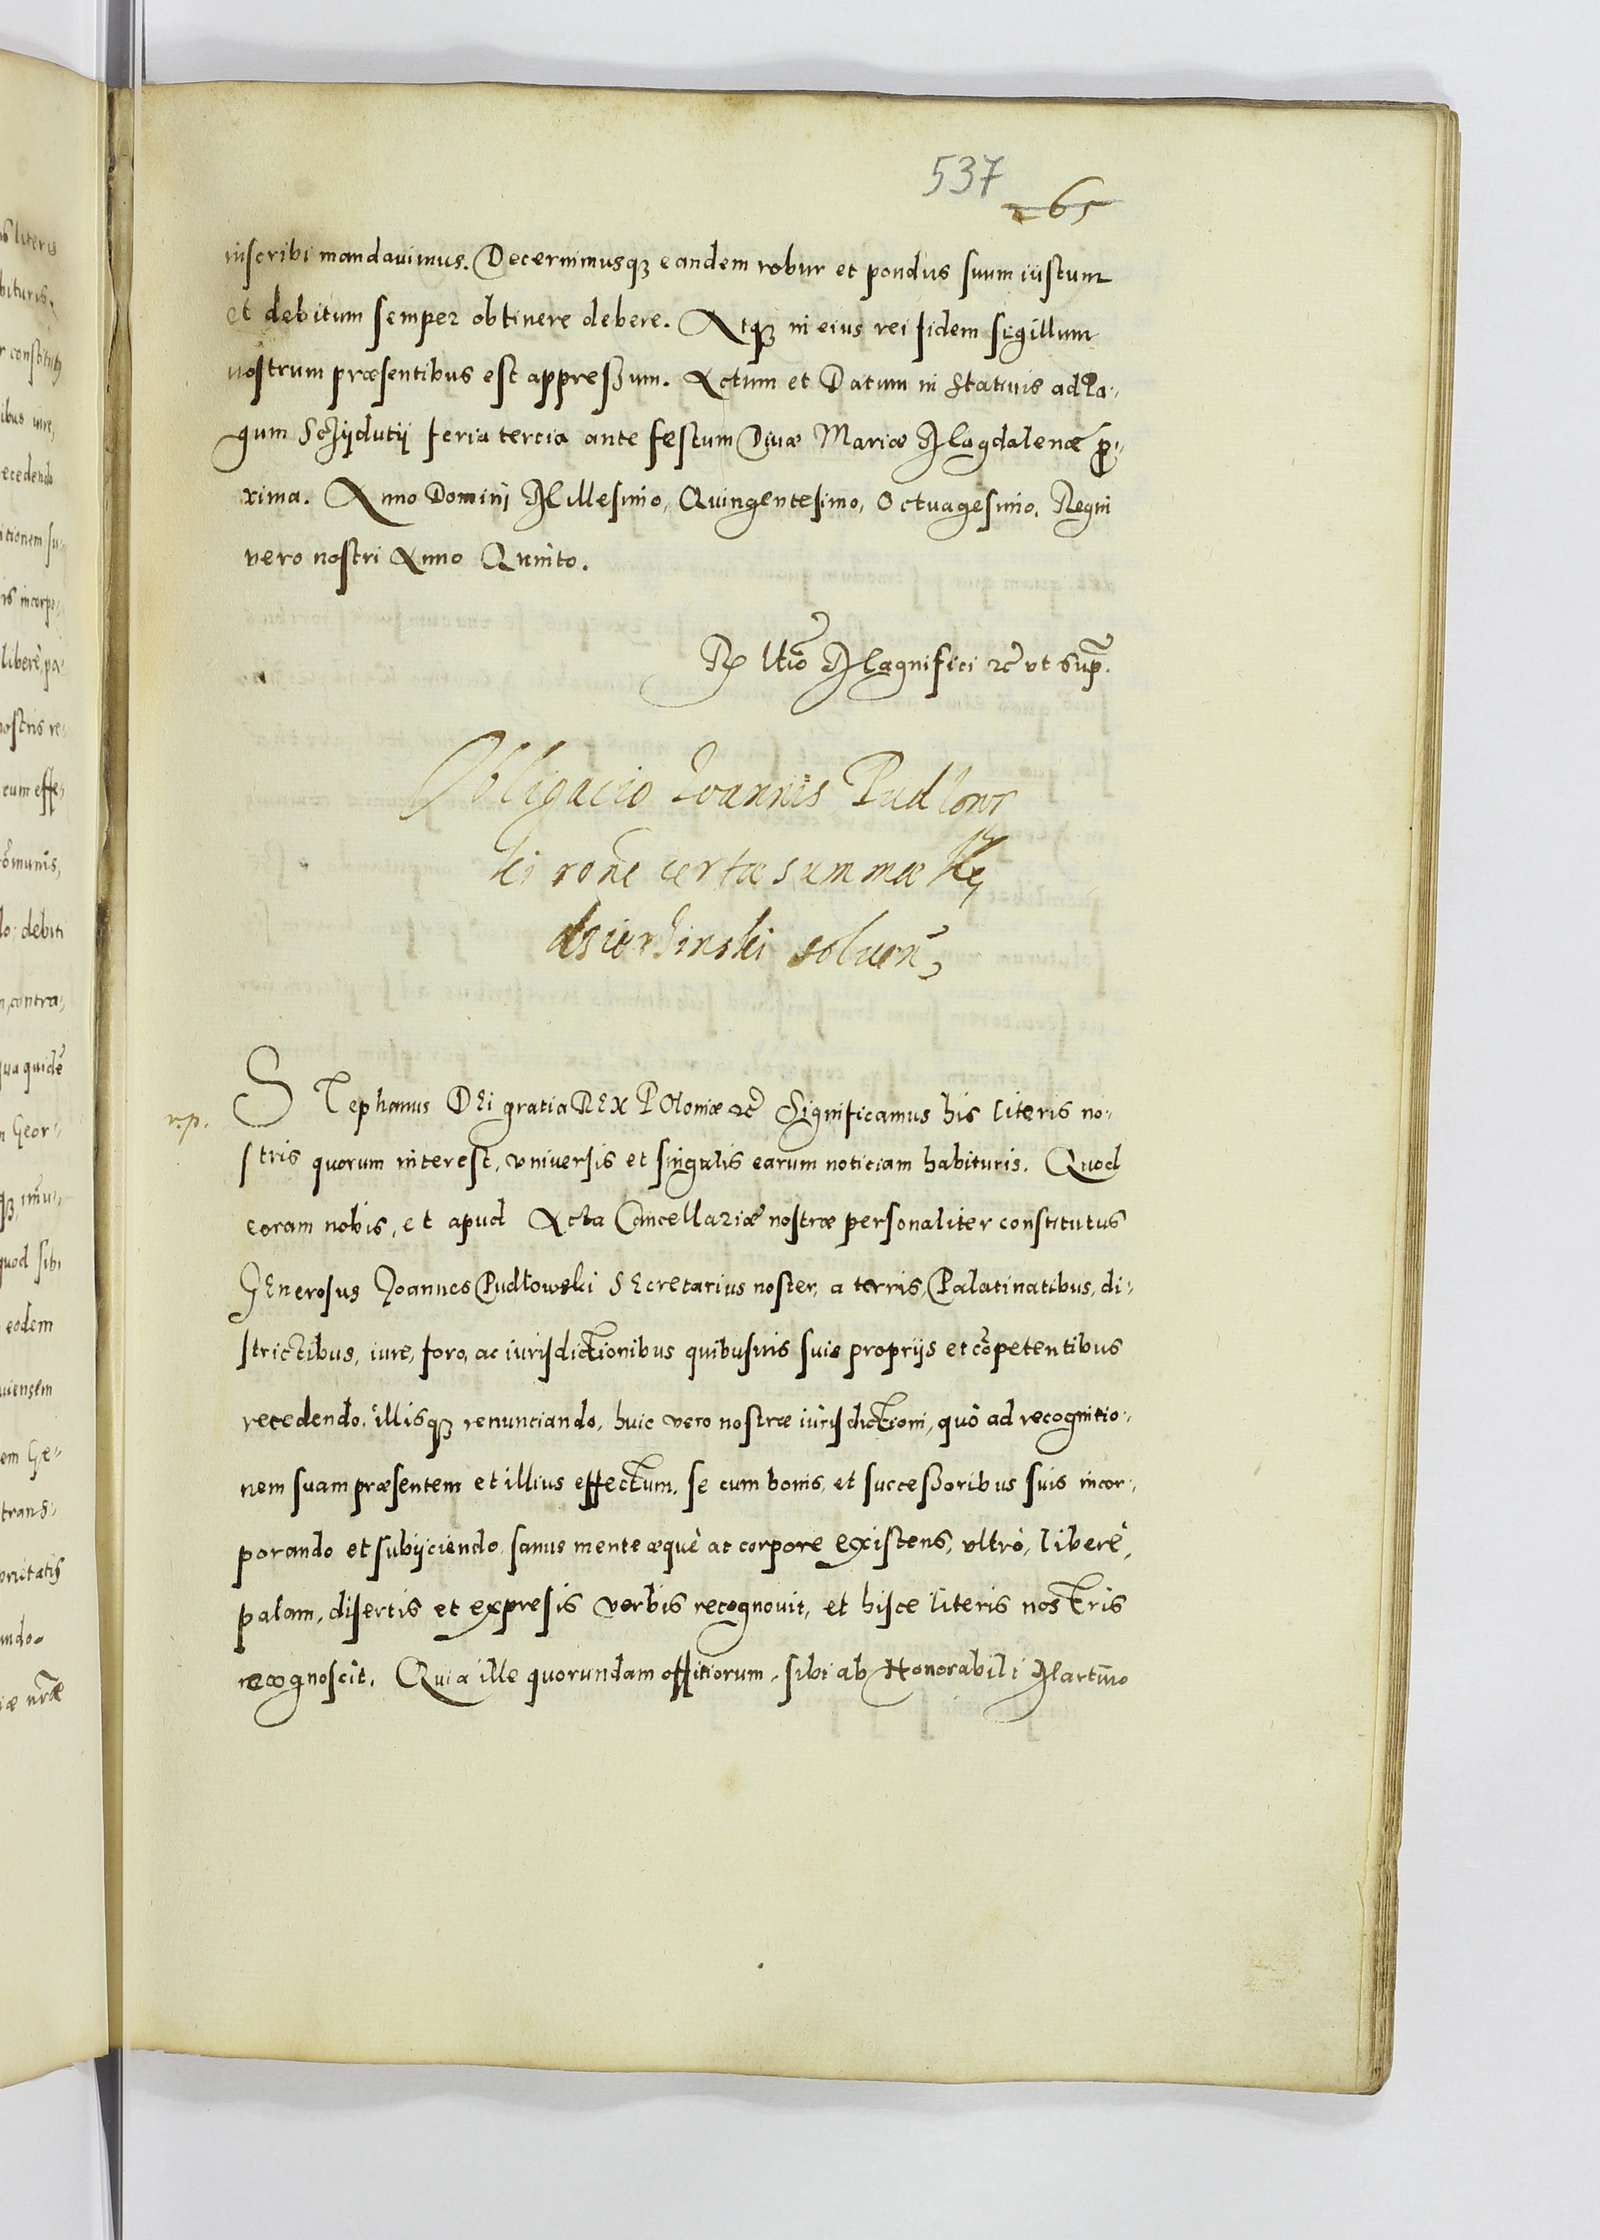 537
265
inscribi mandauimus. Decernimusq3 eandem robur et pondus suum iustum
et debitum semper obtinere debere. Atq3 in eius rei fidem sigillum
nostrum præsentibus est appreßum. Actum et Datum in Statiuis ad La-
gum feria tercia ante festum Diuæ Mariæ Magdalenæ p̃-
xima. Anno Domini Millesimo, Quingentesimo, Octuagesimo, Regni
vero nostri Anno Quinto.
Rltio Magnifici &c̃ vt Sup̃.
Obligacio Ioannis Pudlows
ki rone certæ summæ
dzierzinski soluen̄
r. p.
STephanus DEi gratia REX POloniæ &c̃ Significamus his literis no-
stris quorum interest, vniuersis et singulis earum noticiam habituris. Quod
coram nobis, et apud Acta Cancellariæ nostræ personaliter constitutus
GEnerosus Joannes Pudłowski SEcretarius noster, a terris, Palatinatibus, di-
strictibus, iure, foro, ac iurisdictionibus quibusuis suis proprijs et cõpetentibus
recedendo, illisq3 renunciando, huic vero nostræ iurisdictioni, quò ad recognitio-
nem suam præsentem et illius effectum, se cum bonis, et succeßoribus suis incor-
porando et subijciendo, sanus mente æquè ac corpore existens, vltrò, liberè,
palam, disertis et expresis verbis recognouit, et hisce literis nostris
recognoscit. Quia ille quorundam offitiorum, sibi ab Honorabili Martino